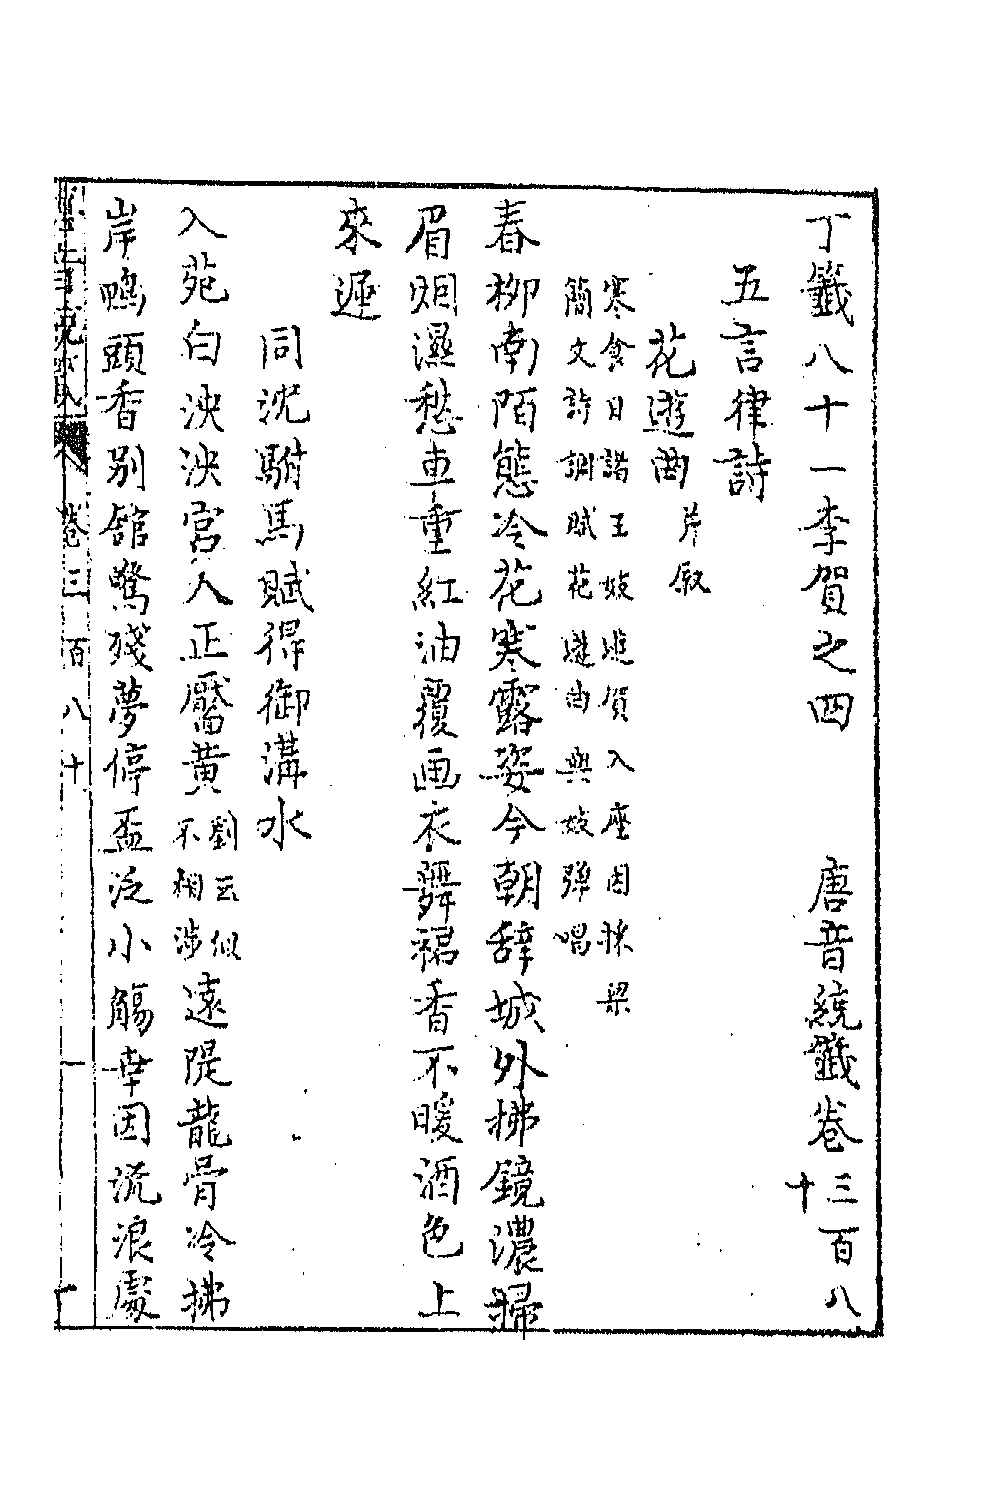 丁籤八十一李賀之四　唐音統籤卷三百八十
五言律詩
花遊曲并敘
寒食日諸王妓遊賀入座因採梁
簡文詩調賦花遊曲與妓彈唱
春柳南陌態冷花寒露姿今朝辭城外拂鏡濃掃
眉烟濕愁車重紅油覆画衣舞裙香不暖酒色上
來遲
同沈駙馬賦得御溝水
入苑白泱泱宮人正靨黃劉云似不相涉遠隄龍骨冷拂
岸鴨頭香別舘驚殘夢停盃泛小觴幸因流浪處
卷三百八十　一